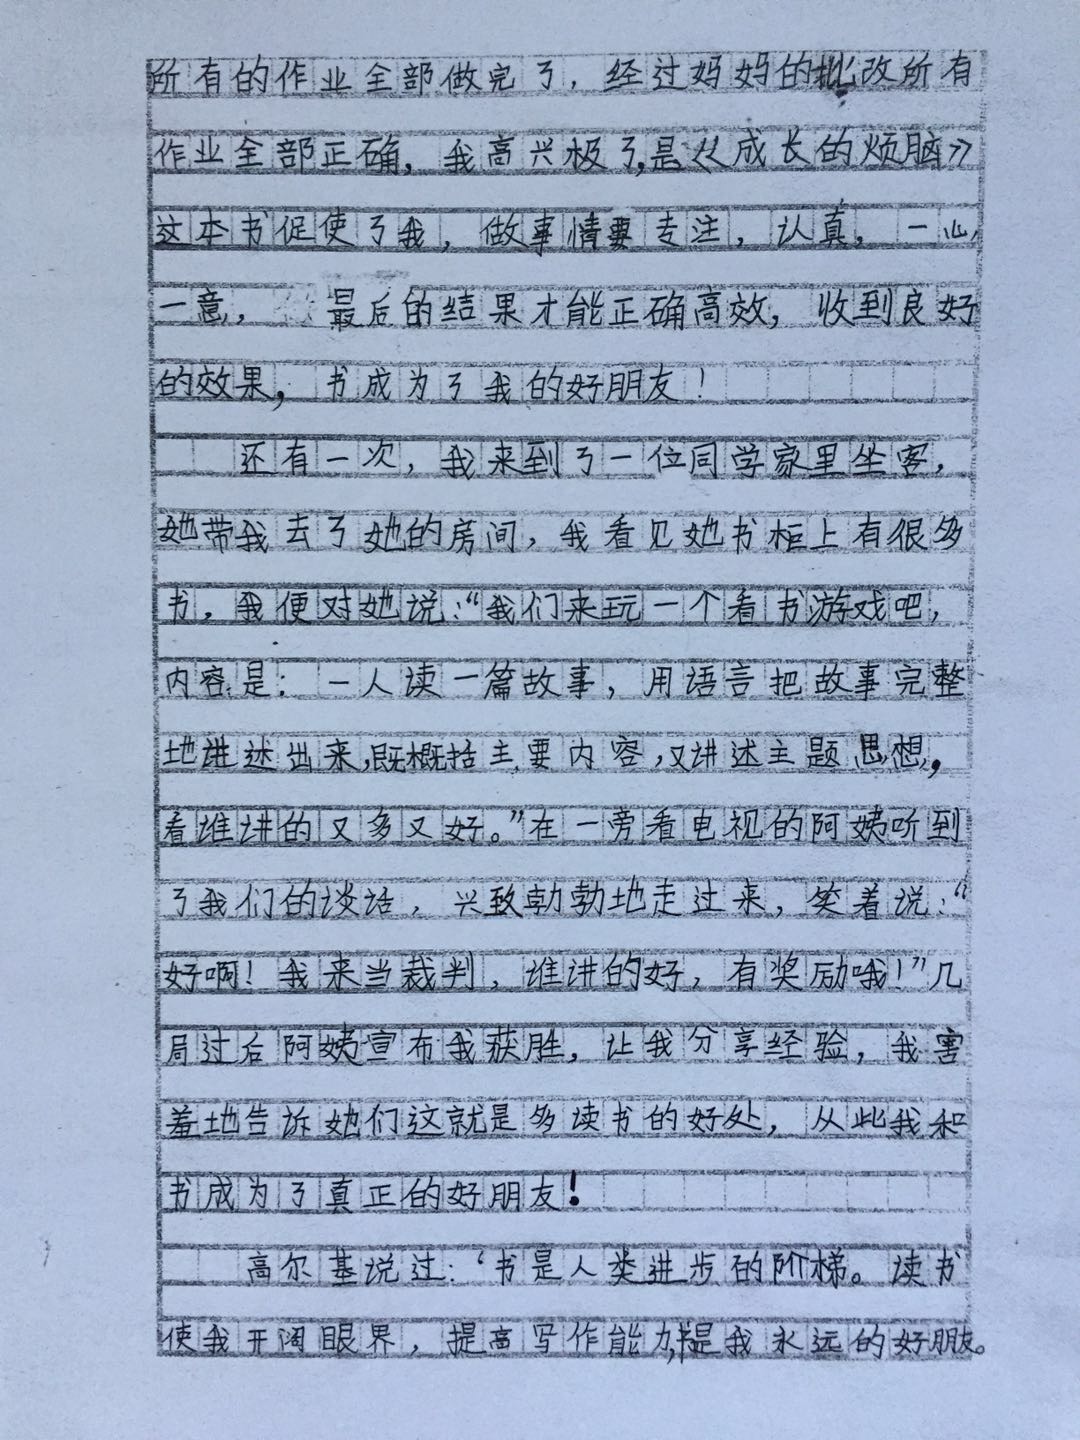 所有的作业全部做完了，经过妈妈的批改所有
作业全部正确，我高兴极了，是《成长的烦脑》
这本书促使了我，做事情要专注，认真，一心
一意，最后的结果才能正确高效，收到良好
的效果，书成为了我的好朋友！
还有一次，我来到了一位同学家里坐客，
她带我去了她的房间，我看见她书柜上有很多
书，我便对她说：“我们来玩一个看书游戏吧，
内容是：一人读一篇故事，用语言把故事完整
地讲述出来，既概括主要内容，又讲述主题思想，
看谁讲的又多又好。”在一旁看电视的阿姨听到
了我们的谈话，兴致勃勃地走过来，笑着说：“
好啊！我来当裁判，谁讲的好，有奖励哦！”几
局过后阿姨宣布我获胜，让我分享经验，我害
羞地告诉她们这就是多读书的好处，从此我和
书成为了真正的好朋友！
高尔基说过：‘书是人类进步的阶梯。读书
使我开阔眼界，提高写作能力，书是我永远的好朋友。